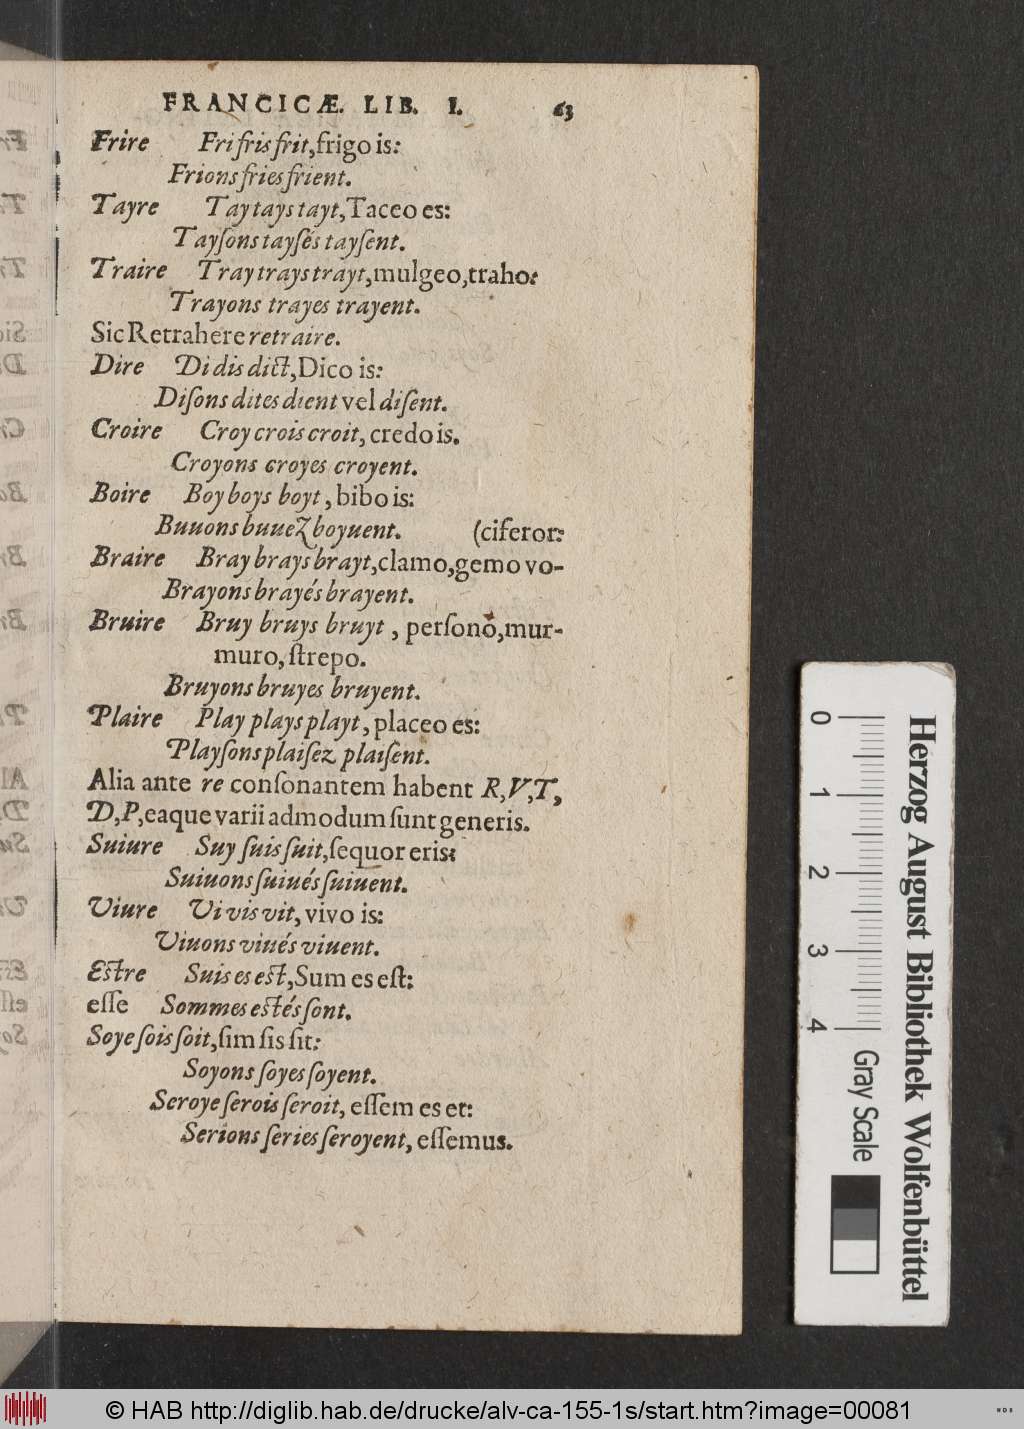 FRANCICÆ. LIB. I. 63
Frire Fri fris frit, frigo is:
Frions fries frient.
Tayre Tay tays tayt, Taceo es:
Tayſons tayſés tayſent.
Traire Tray trays trayt, mulgeo, traho:
Trayons trayes trayent.
Sic Retrahere retraire.
Dire Di dis dict, Dico is:
Diſons dites dient vel diſent.
Croire Croy crois croit, credo is.
Croyons croyes croyent.
Boire Boy boys boyt, bibo is:
Buuons buuez boyuent. (ciferor:
Braire Bray brays brayt, clamo, gemo vo-
Brayons brayés brayent.
Bruire Bruy bruys bruyt, perſono, mur-
muro, ſtrepo.
Bruyons bruyes bruyent.
Plaire Play plays playt, placeo es:
Playſons plaiſez plaiſent.
Alia ante re conſonantem habent R, V, T,
D, P, eaque varii admodum ſunt generis.
Suiure Suy ſuis ſuit, ſequor eris:
Suiuons ſuiués ſuiuent.
Viure Vi vis vit, vivo is:
Viuons viués viuent.
Eſtre Suis es eſt, Sum es eſt:
eſſe Sommes eſtés ſont.
Soye ſois ſoit, ſim ſis ſit:
Soyons ſoyes ſoyent.
Seroye ſerois ſeroit, eſſem es et:
Serions ſeries ſeroyent, eſſemus.
0 1 2 3 4 Gray Scale
Herzog August Bibliothek Wolfenbüttel
© HAB http://diglib.hab.de/drucke/alv-ca-155-1s/start.htm?image=00081